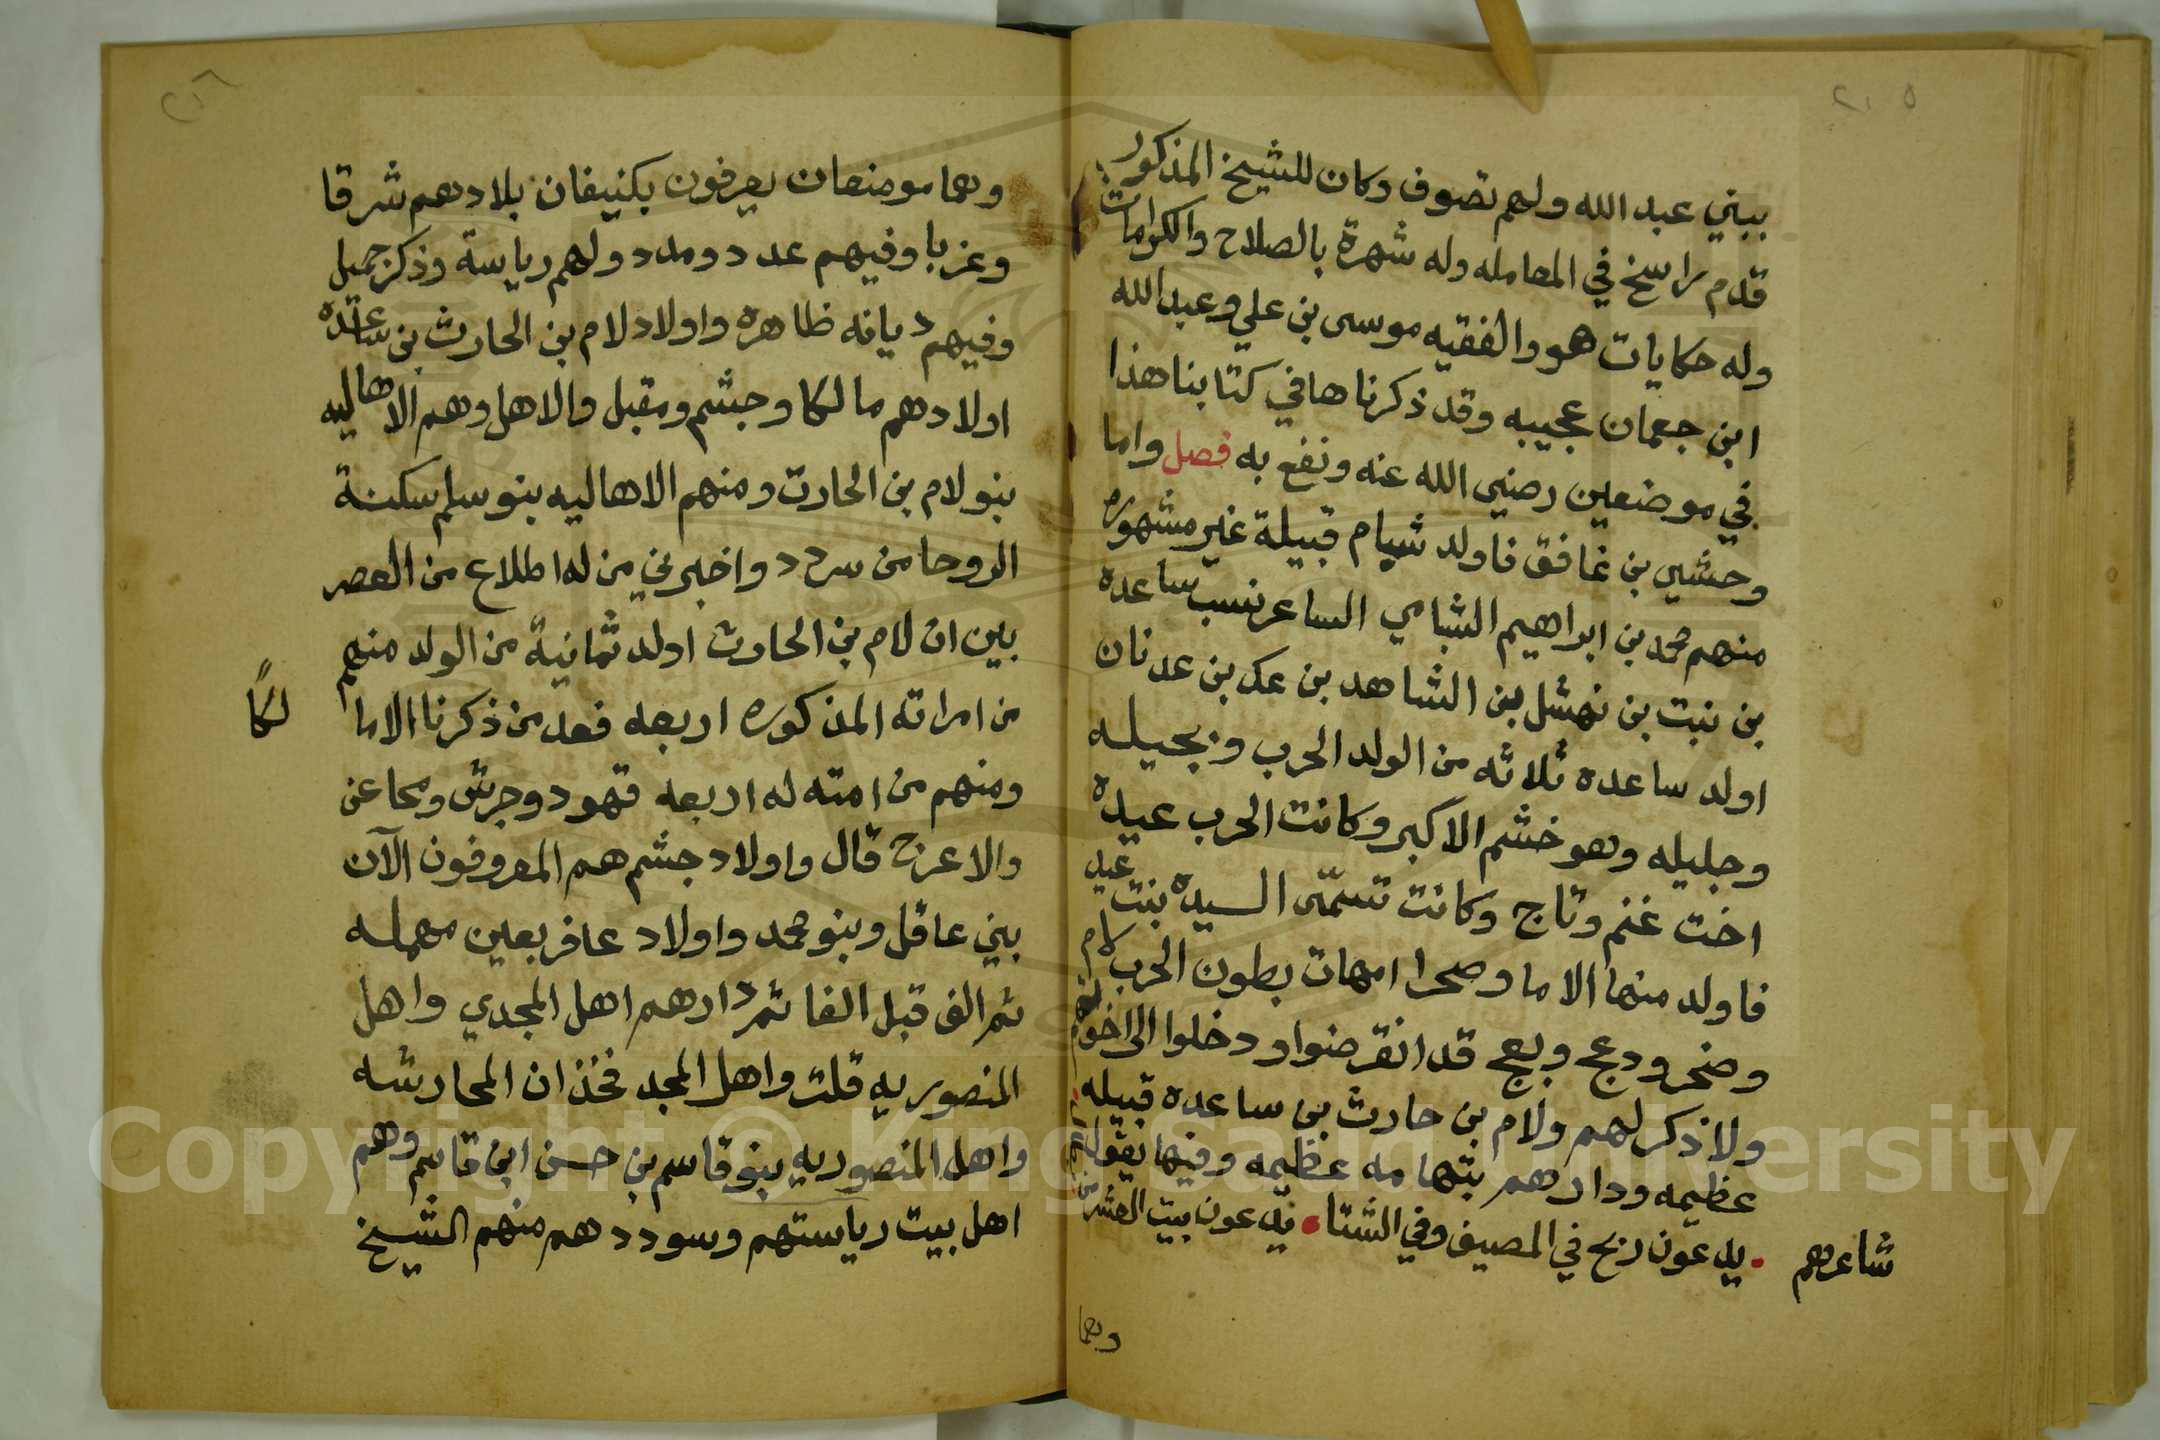 ٢١٥
ببني عبد الله ولهم تصوف وكان للشيخ المذكور
قدم راسخ في المعامله وله شهرة بالصلاح والكرامات
وله حكايات هو والفقيه موسى بن علي وعبد الله
ابن جعمان عجيبه وقد ذكرناها في كتابنا هذا
في موضعين رضي الله عنه ونفع به فصل واما
وحشي بن غافق فاولد شيام قبيلة غير مشهوره
منهم محمد بن ابراهيم الشبامي الساعر نسب ساعده
بن نبت بن نهشل بن الشاهد بن عك بن عدنان
اولد ساعده ثلاثه من الولد الحرب وبجيله
وجليله وهو خشم الاكبر وكانت الحرب عيدة
اخت غنم وتاج وكانت تسمّى السيدة بنت عيد
فاولد منها الاما وصحرا امهات بطون الحرب لام
وضحر ودعج وبعج قد انقرضوا ودخلوا الى اخوتهم
ولا ذكر لهم ولام بن حارث بن ساعده قبيله
عظيمه ودارهم بتهامه عظيمه وفيها يقول
شاعرهم يدعون ريح في المصيف وفي الشتا يدعون بيت العشر
وهما
٢١٦
وهما موضعان يعرفون بكنيفان بلادهم شرقا
وغربا وفيهم عدد ومدد ولهم رياسة وذكر جميل
وفيهم ديانه ظاهره واولاد لام بن الحارث بن ساعدة
اولادهم مالكا وجشم ومقبل والاهل وهم الاهاليه
بنو لام بن الحارث ومنهم الاهاليه بنو سلم سكنة
الروحا من سردد واخبرني من له اطلاع من العصر
بين ان لام بن الحارث اولد ثمانية من الولد منهم
من امراته المذكوره اربعه فعد من ذكرنا الاما
لكًا
ومنهم من امته له اربعه قهود وجرش ومحاعن
والاعرج قال واولاد جشم هم المعروفون الآن
ببني عاقل وبنو محمد واولاد عافر بعين مهمله
ثم الف قبل الفا ثم دارهم اهل المجدي واهل
المنصوريه قلت واهل المجد فخذان المحارشه
واهل المنصوريه بنو قاسم بن حسن ابن قاسم وهم
اهل بيت رياستهم وسوددهم منهم الشيخ
Copyright © King Saud University